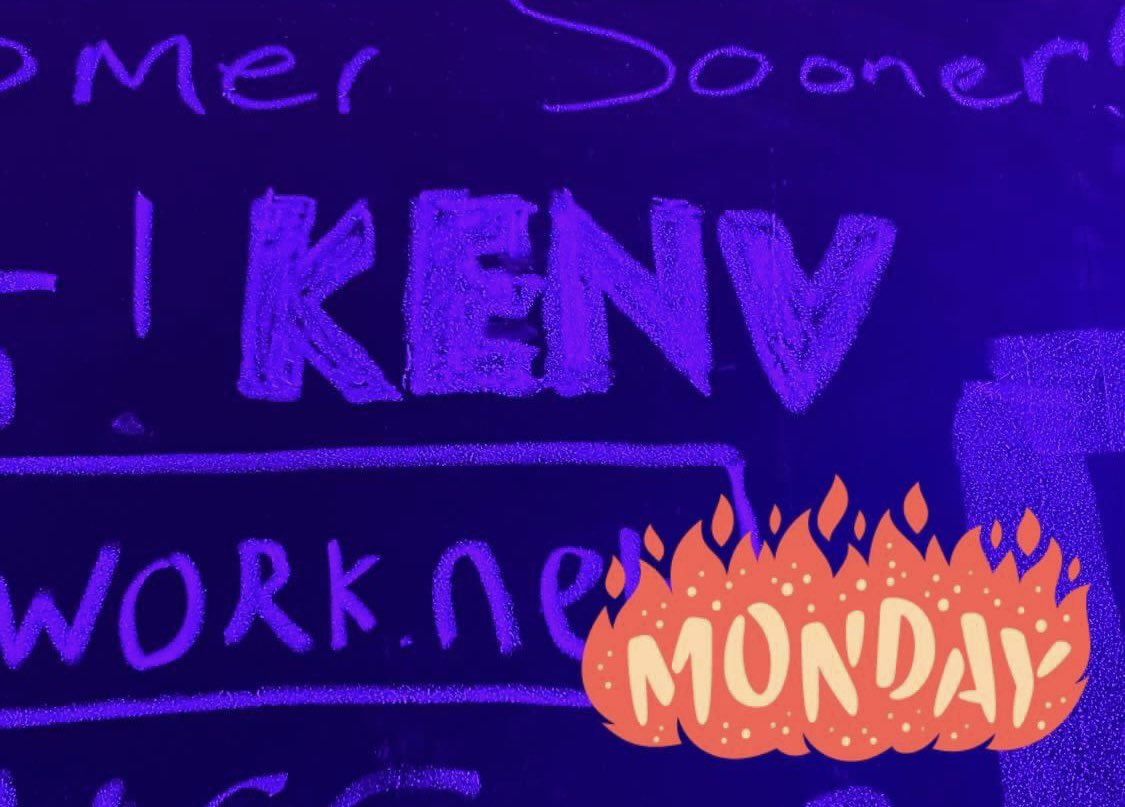 omer Sooner
KENV
WORK.ne
MONDAY